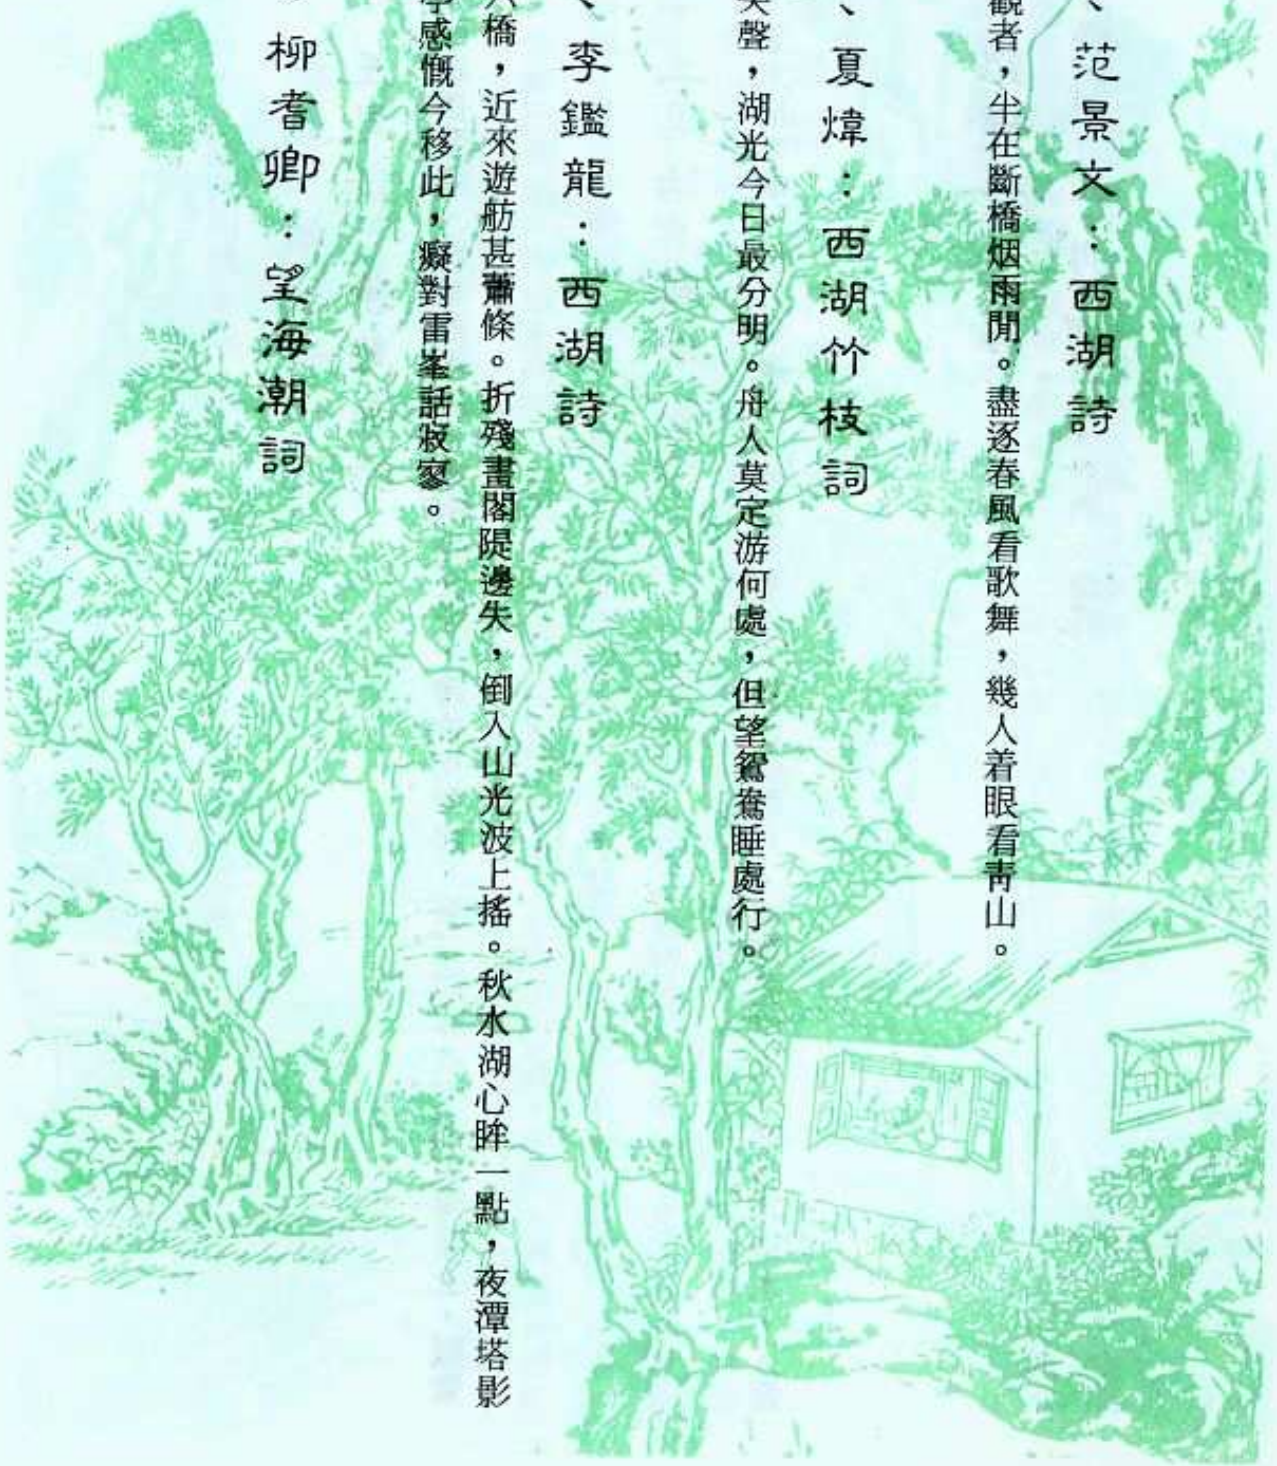 、范景文：西湖詩
觀者，半在斷橋烟雨閒。盡逐春風看歌舞，幾人着眼看靑山。
、夏煒：西湖竹枝詞
聲，湖光今日最分明。舟人莫定游何處，但望鴛鴦睡處行。
、李鑑龍：西湖詩
橋，近來遊舫甚蕭條。折殘畫閣隄邊失，倒入山光波上搖。秋水湖心眸一點，夜潭塔影
感慨今移此，癡對雷峯話寂寥。
柳耆卿：望海潮詞